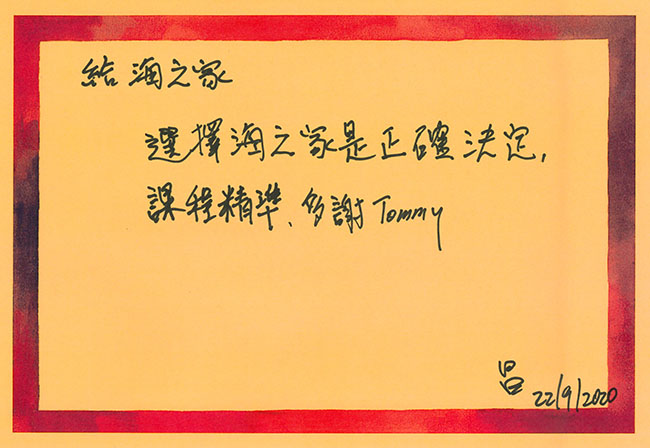 給海之家
選擇海之家是正確決定,
課程精準、多謝Tommy
昌
22/9/2020